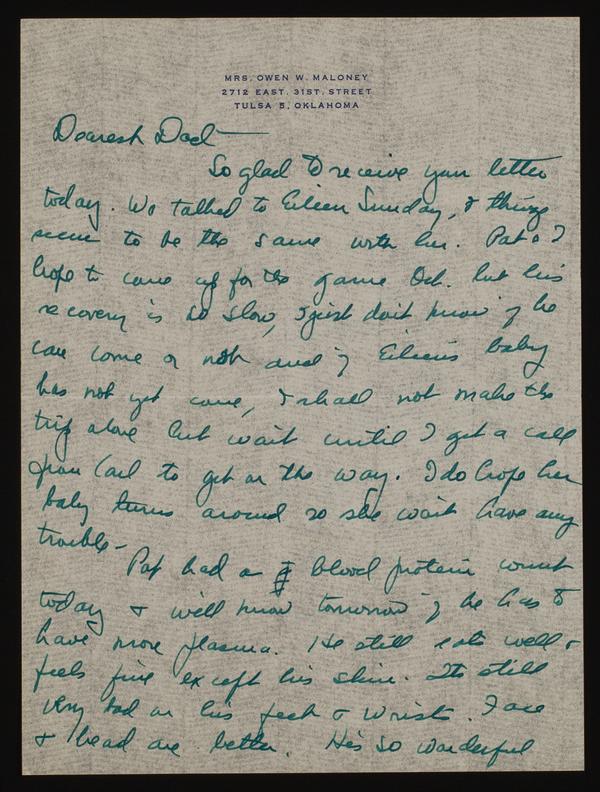 MRS. OWEN W. MALONEY
2712 EAST. 31ST. STREET
TULSA 5, OKLAHOMA
Dearest Dad —
So glad to receive your letter
today. We talked to Eileen Sunday, & things
seem to be the same with her. Pat & I
hope to come up for the game Oct. but his
recovery is so slow, I just don't know if he
can come or not and if Eileen's baby
has not yet come, I shall not make the
trip alone but wait until I get a call
from Carl to get on the way. I do hope her
baby turns around so she won't have any
trouble -
Pat had a blood protein count
today & we'll know tomorrow if he has to
have more plasma. He still eats well &
feels fine except his skin. Its still
very bad on his feet & wrists. Face
& head are better. He's so wonderful